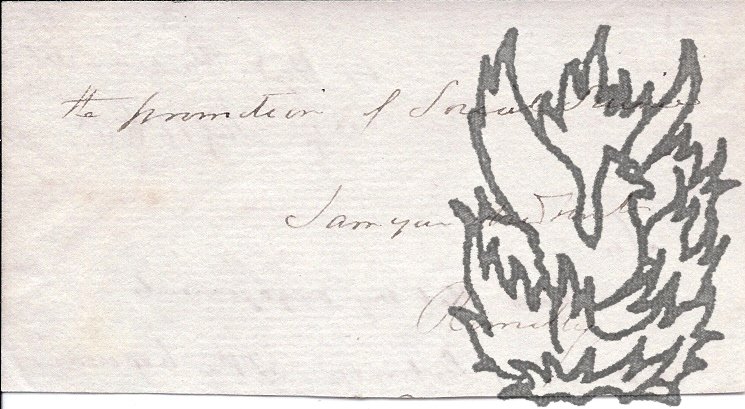 the promotion of Social Science
I am your obedient
Romilly